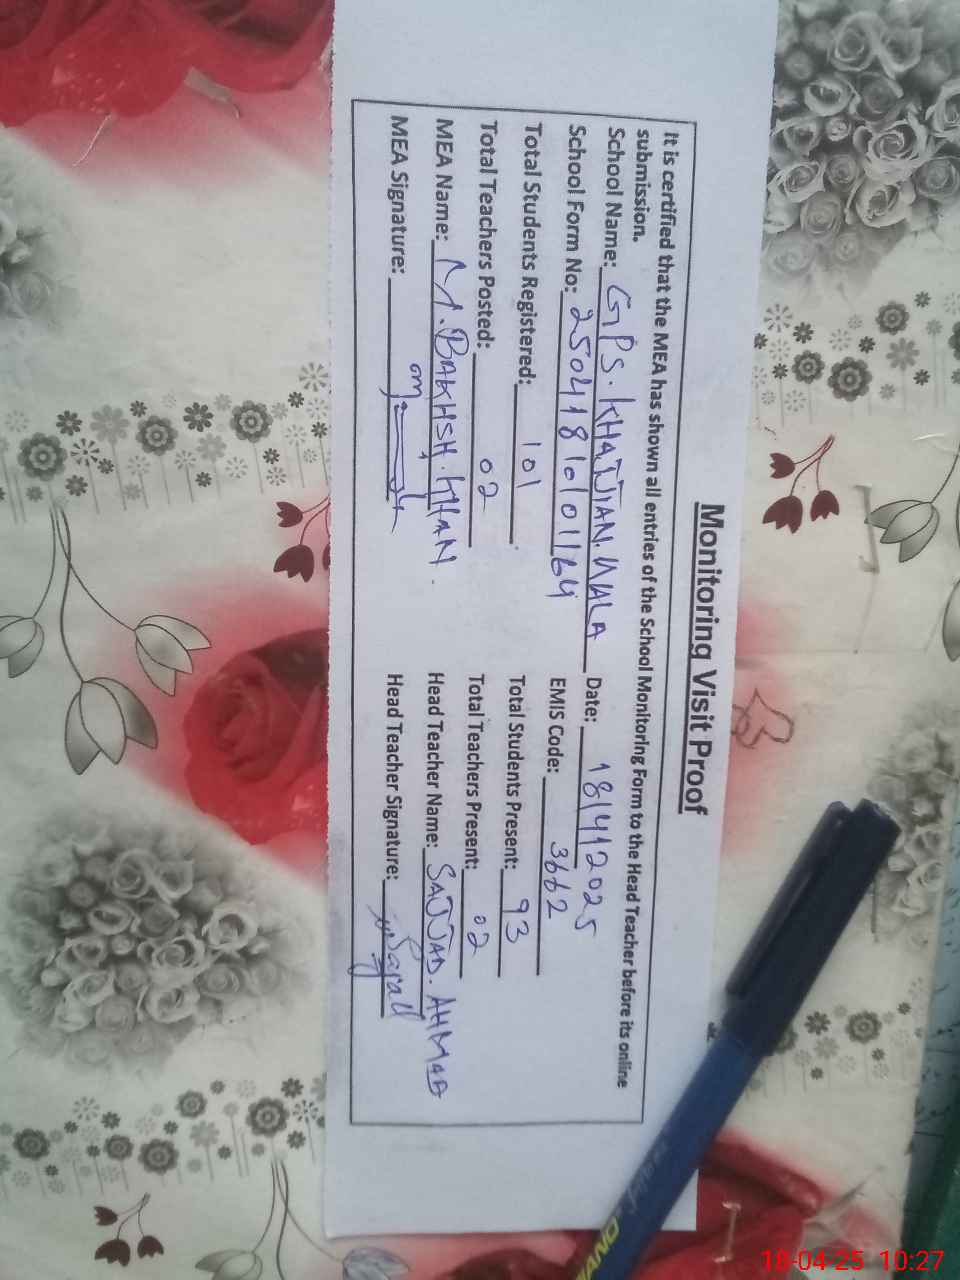 Monitoring Visit Proof
It is certified that the MEA has shown all entries of the School Monitoring Form to the Head Teacher before its online
submission.
School Name: GPS. KHAJJIAN. WALA Date: 18/4/2025
School Form No: 25041810101164 EMIS Code: 3662
Total Students Registered: 101 Total Students Present: 93
Total Teachers Posted: 02 Total Teachers Present: 02
MEA Name: M. BAKHSH. KHAN. Head Teacher Name: SAJJAD. AHMAD
MEA Signature: Head Teacher Signature:
18-04-25 10:27